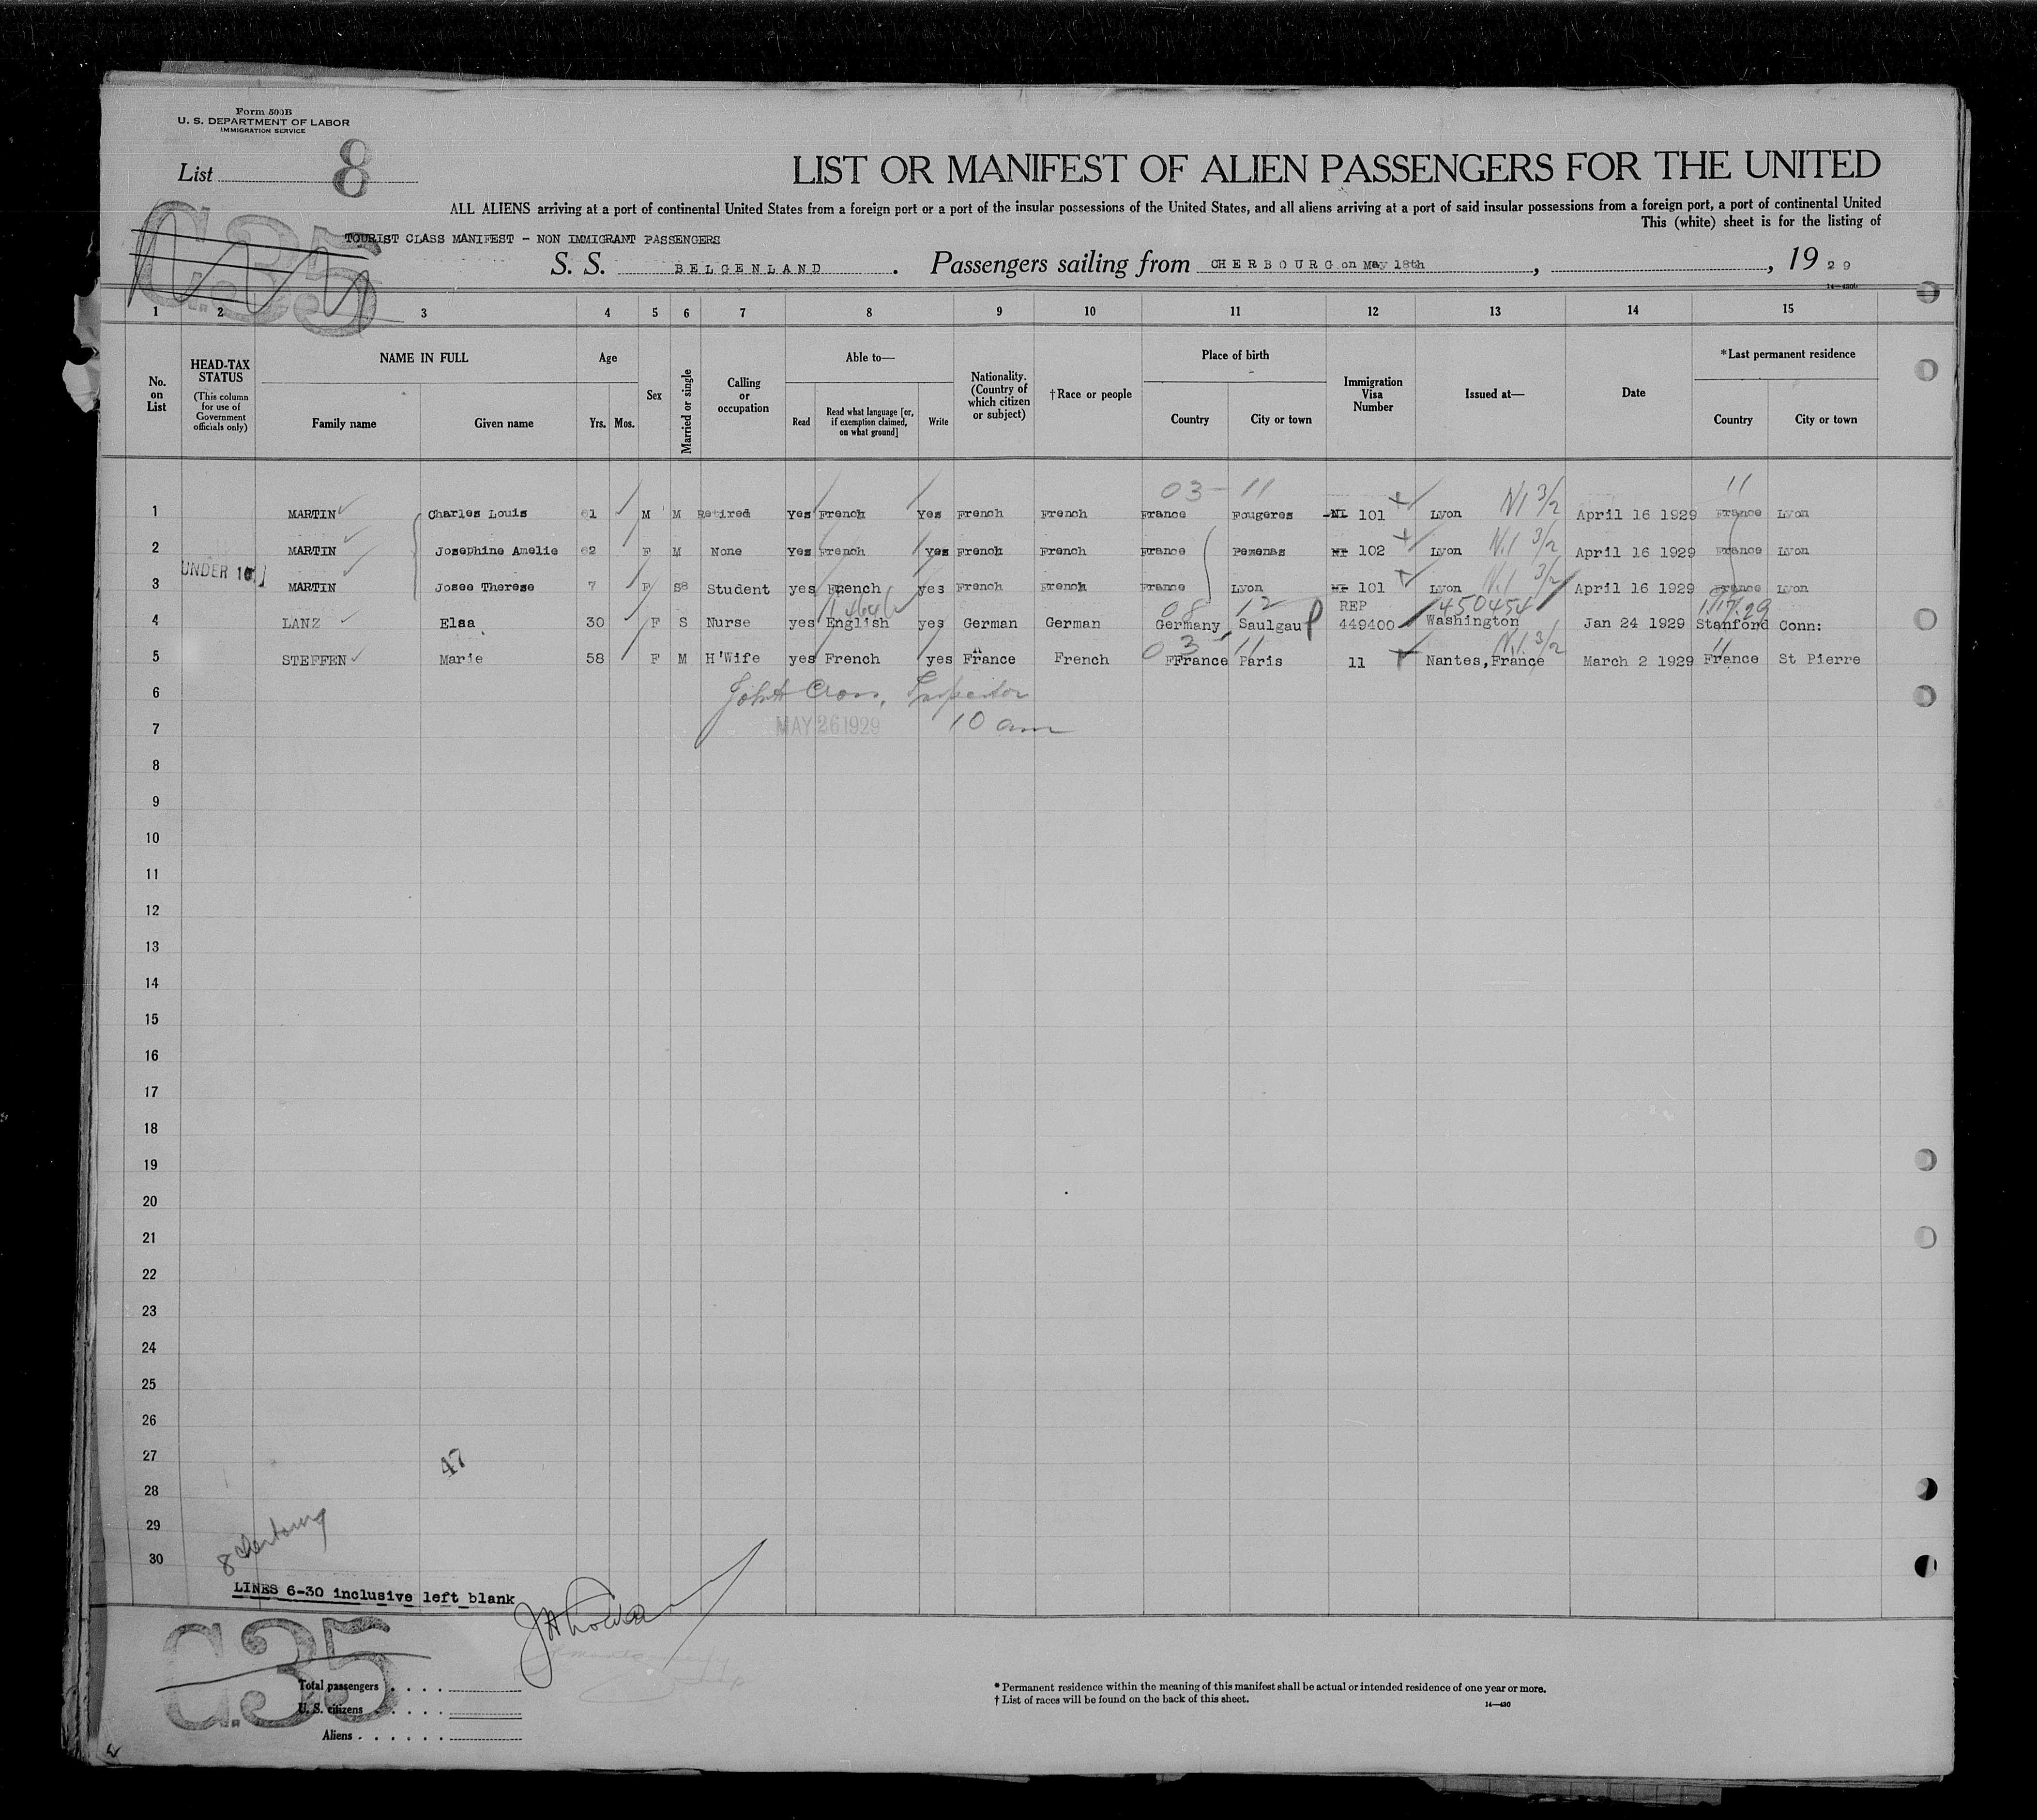 Form 500B
U. S. DEPARTMENT OF LABOR
IMMIGRATION SERVICE
List 8
LIST OR MANIFEST OF ALIEN PASSENGERS FOR THE UNITED
ALL ALIENS arriving at a port of continental United States from a foreign port or a port of the insular possessions of the United States, and all aliens arriving at a port of said insular possessions from a foreign port, a port of continental United
This (white) sheet is for the listing of
C.35
TOURIST CLASS MANIFEST - NON IMMIGRANT PASSENGERS
S. S. BELGENLAND . Passengers sailing from CHERBOURG on May 18th , , 19 29
1 2 3 4 5 6 7 8 9 10 11 12 13 14 15
No. on List
HEAD-TAX STATUS
(This column for use of Government officials only)
NAME IN FULL
Family name Given name
Age
Yrs. Mos.
Sex
Married or single
Calling or occupation
Able to—
Read
Read what language [or, if exemption claimed, on what ground]
Write
Nationality. (Country of which citizen or subject)
†Race or people
Place of birth
Country City or town
Immigration Visa Number
Issued at—
Date
*Last permanent residence
Country City or town
03-11 11
1 MARTIN Charles Louis 61 M M Retired Yes French Yes French French France Fougeres NI 101 Lyon N.I 3/2 April 16 1929 France Lyon
2 MARTIN Josephine Amelie 62 F M None Yes French yes French French France Pezenas 102 Lyon N.I 3/2 April 16 1929 France Lyon
UNDER 16
3 MARTIN Josee Therese 7 F S Student yes French yes French French France Lyon 101 Lyon N.I 3/2 April 16 1929 France Lyon
08 12 REP 450454
4 LANZ Elsa 30 F S Nurse yes English yes German German Germany Saulgau 449400 Washington Jan 24 1929 Stanford Conn:
03 11 N.I. 3/2 11
5 STEFFEN Marie 58 F M H'Wife yes French yes France French FFrance Paris 11 Nantes,France March 2 1929 France St Pierre
6 Cross, Inspector
7 MAY 26 1929 10 am
8
9
10
11
12
13
14
15
16
17
18
19
20
21
22
23
24
25
26
27
47
28
29
30
8 Cherbourg
LINES 6-30 inclusive left blank
C.35
Total passengers
U. S. citizens
Aliens
* Permanent residence within the meaning of this manifest shall be actual or intended residence of one year or more.
† List of races will be found on the back of this sheet.
14—430